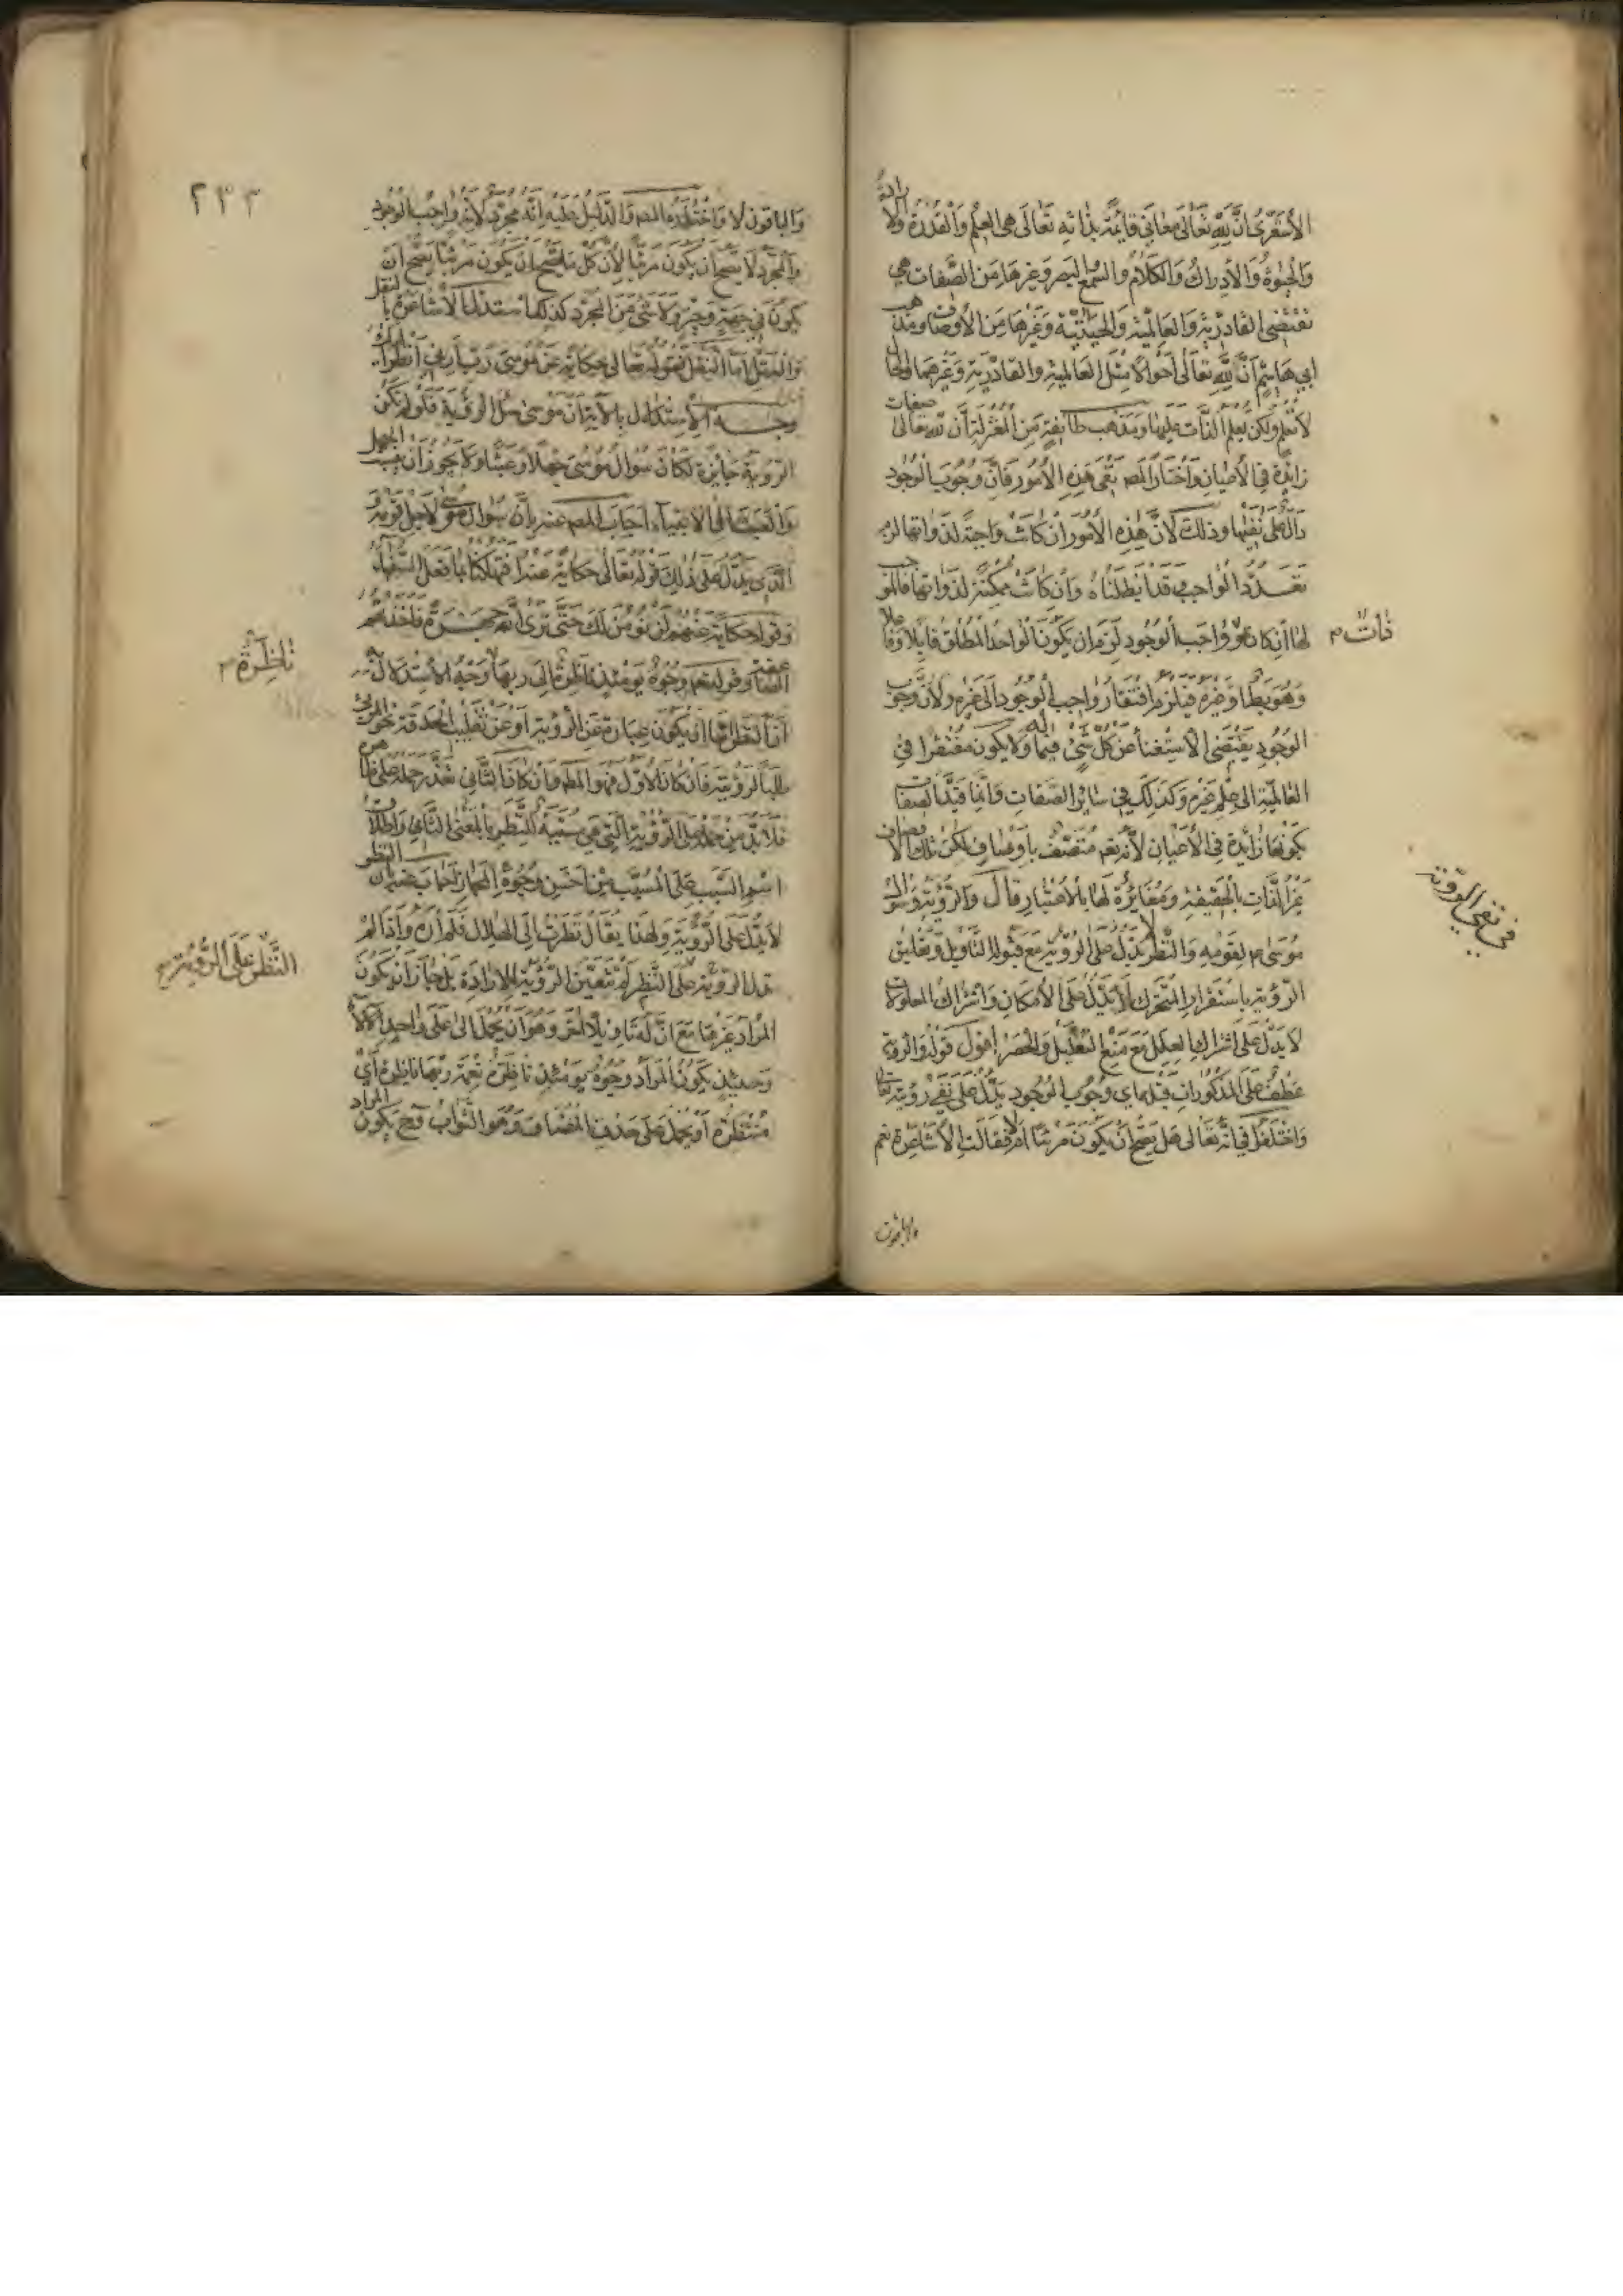 الأشعري ان لله تعالى معاني قائمة بذاته تعالى هي العلم والقدرة والارادة
والحيوة والادراك والكلام والسمع والبصر وغيرها من الصفات هي
تقتضي القادرية والعالمية والحيية وغيرها من الأوصاف ومذهب
ابي هاشم أن لله تعالى أحوالا مثل العالمية والقادرية وغيرهما والحال
لا تعلم ولكن يعلم الذات عليها ومذهب طائفة من المعتزلة أن لله تعالى صفات
زايدة في الأعيان واختار المص نفي هذه الأمور فان وجوب الوجود
دال على نفيها وذلك لأن هذه الأمور ان كانت واجبة لذواتها لزم
تعدد الواجب وقد ابطلناه وان كانت ممكنة لذواتها فالموجب
لها ان كان هو واجب الوجود لزم ان يكون الواحد المطلق قابلا وفاعلا
وهو بط او غيره فيلزم افتقار واجب الوجود الى غيره ولأن وجوب
الوجود يقتضي الاستغناء عن كل شيء فلا يكون مفتقرا في
العالمية الى علم غيره وكذلك في سائر الصفات وانما قيد الصفات
بكونها زايدة في الأعيان لأنه تعم متصف بأوصاف لكن تلك الاوصاف
عين الذات بالحقيقة ومغايرة لها بالاعتبار قال والرؤية وسؤال
موسى م لقومه والنظر لا يدل على الرؤية مع قبوله التاويل وتعليق
الرؤية باستقرار المتحرك لا يدل على الامكان واشتراك المعلولات
لا يدل على اشتراك العلل مع منع التعليل والحصر اقول قوله والرؤية
عطف على المذكورات قبله اي وجوب الوجود يدل على نفي رؤيته تعالى
واختلفوا في انه تعالى هل يصح ان يكون مرئيا ام لا فقالت الاشاعرة نعم
ذات م
في نفي الرؤية
والباقون
٢٣٣
والباقون لا واختاره المص والدليل عليه انه مجرد لأنه واجب الوجود
والمجرد لا يصح أن يكون مرئيا لأن كل ما يصح ان يكون مرئيا يصح ان
يكون في جهة وحيز ولا شيء من المجرد كذلك استدل الأشاعرة بالنقل
والعقل اما النقل فقوله تعالى حكاية عن موسى رب ارني أنظر اليك
وجه الاستدلال بالآية ان موسى سئل الرؤية فلو لم تكن
الرؤية جايزة لكان سؤال موسى جهلا او عبثا ولا يجوز ان ينسب الجهل
والعبث الى الانبياء اجاب المص عنه بأن سؤال موسى لاجل قومه و
الذي يدل على ذلك قوله تعالى حكاية عنه اتهلكنا بما فعل السفهاء
وقوله حكاية عنهم لن نؤمن لك حتى نرى الله جهرة فاخذتهم
الصاعقة وقوله تعم وجوه يومئذ ناظرة الى ربها وجه الاستدلال
أن النظر اما ان يكون عبارة عن الرؤية او عن تقليب الحدقة نحو المرئي
طلبا لرؤيته فان كان الاول فهو المطلوب وان كان الثاني تعذر حمله على ظاهره
فلا بد من حمله على الرؤية التي هي مسببة للنظر بالمعنى الثاني واطلاق
اسم السبب على المسبب من احسن وجوه المجاز اجاب عنه بأن النظر
لا يدل على الرؤية ولهذا يقال نظرت الى الهلال فلم أره واذا لم
يدل الرؤية على النظر لم تتعين الرؤية للارادة بل جاز ان يكون
المراد غيرها مع ان له تاويلا اخر وهو أن يحمل الى على واحد الآلاء
وحينئذ يكون المراد وجوه يومئذ ناظرة نعمة ربها ناظرة اي
منتظرة او يحمل على حذف المضاف وهو الثواب فح يكون المراد
ناظرة م
النظر على الرؤية م